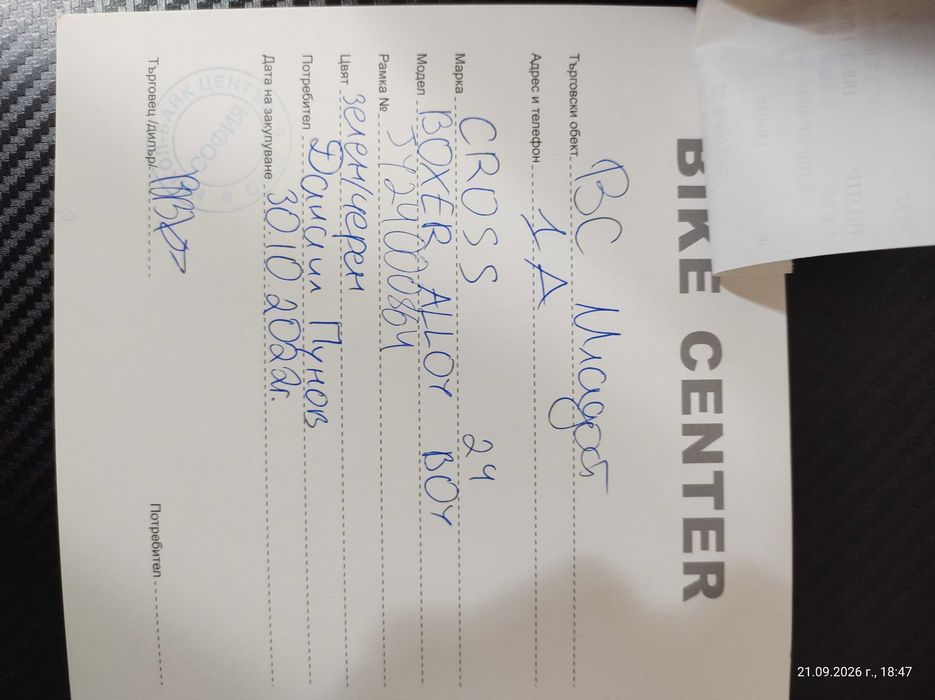 BIKE CENTER
Търговски обект BC Младост
Адрес и телефон 1 А
Марка CROSS 24
Модел BOXER ALLOY BOY
Рамка №
Цвят зелен/черен
Потребител Даниил Пунов
Дата на закупуване 30.10.2022г.
Търговец /дилър/
Потребител
БАЙК ЦЕНТЪР
СОФИЯ
21.09.2026 г., 18:47